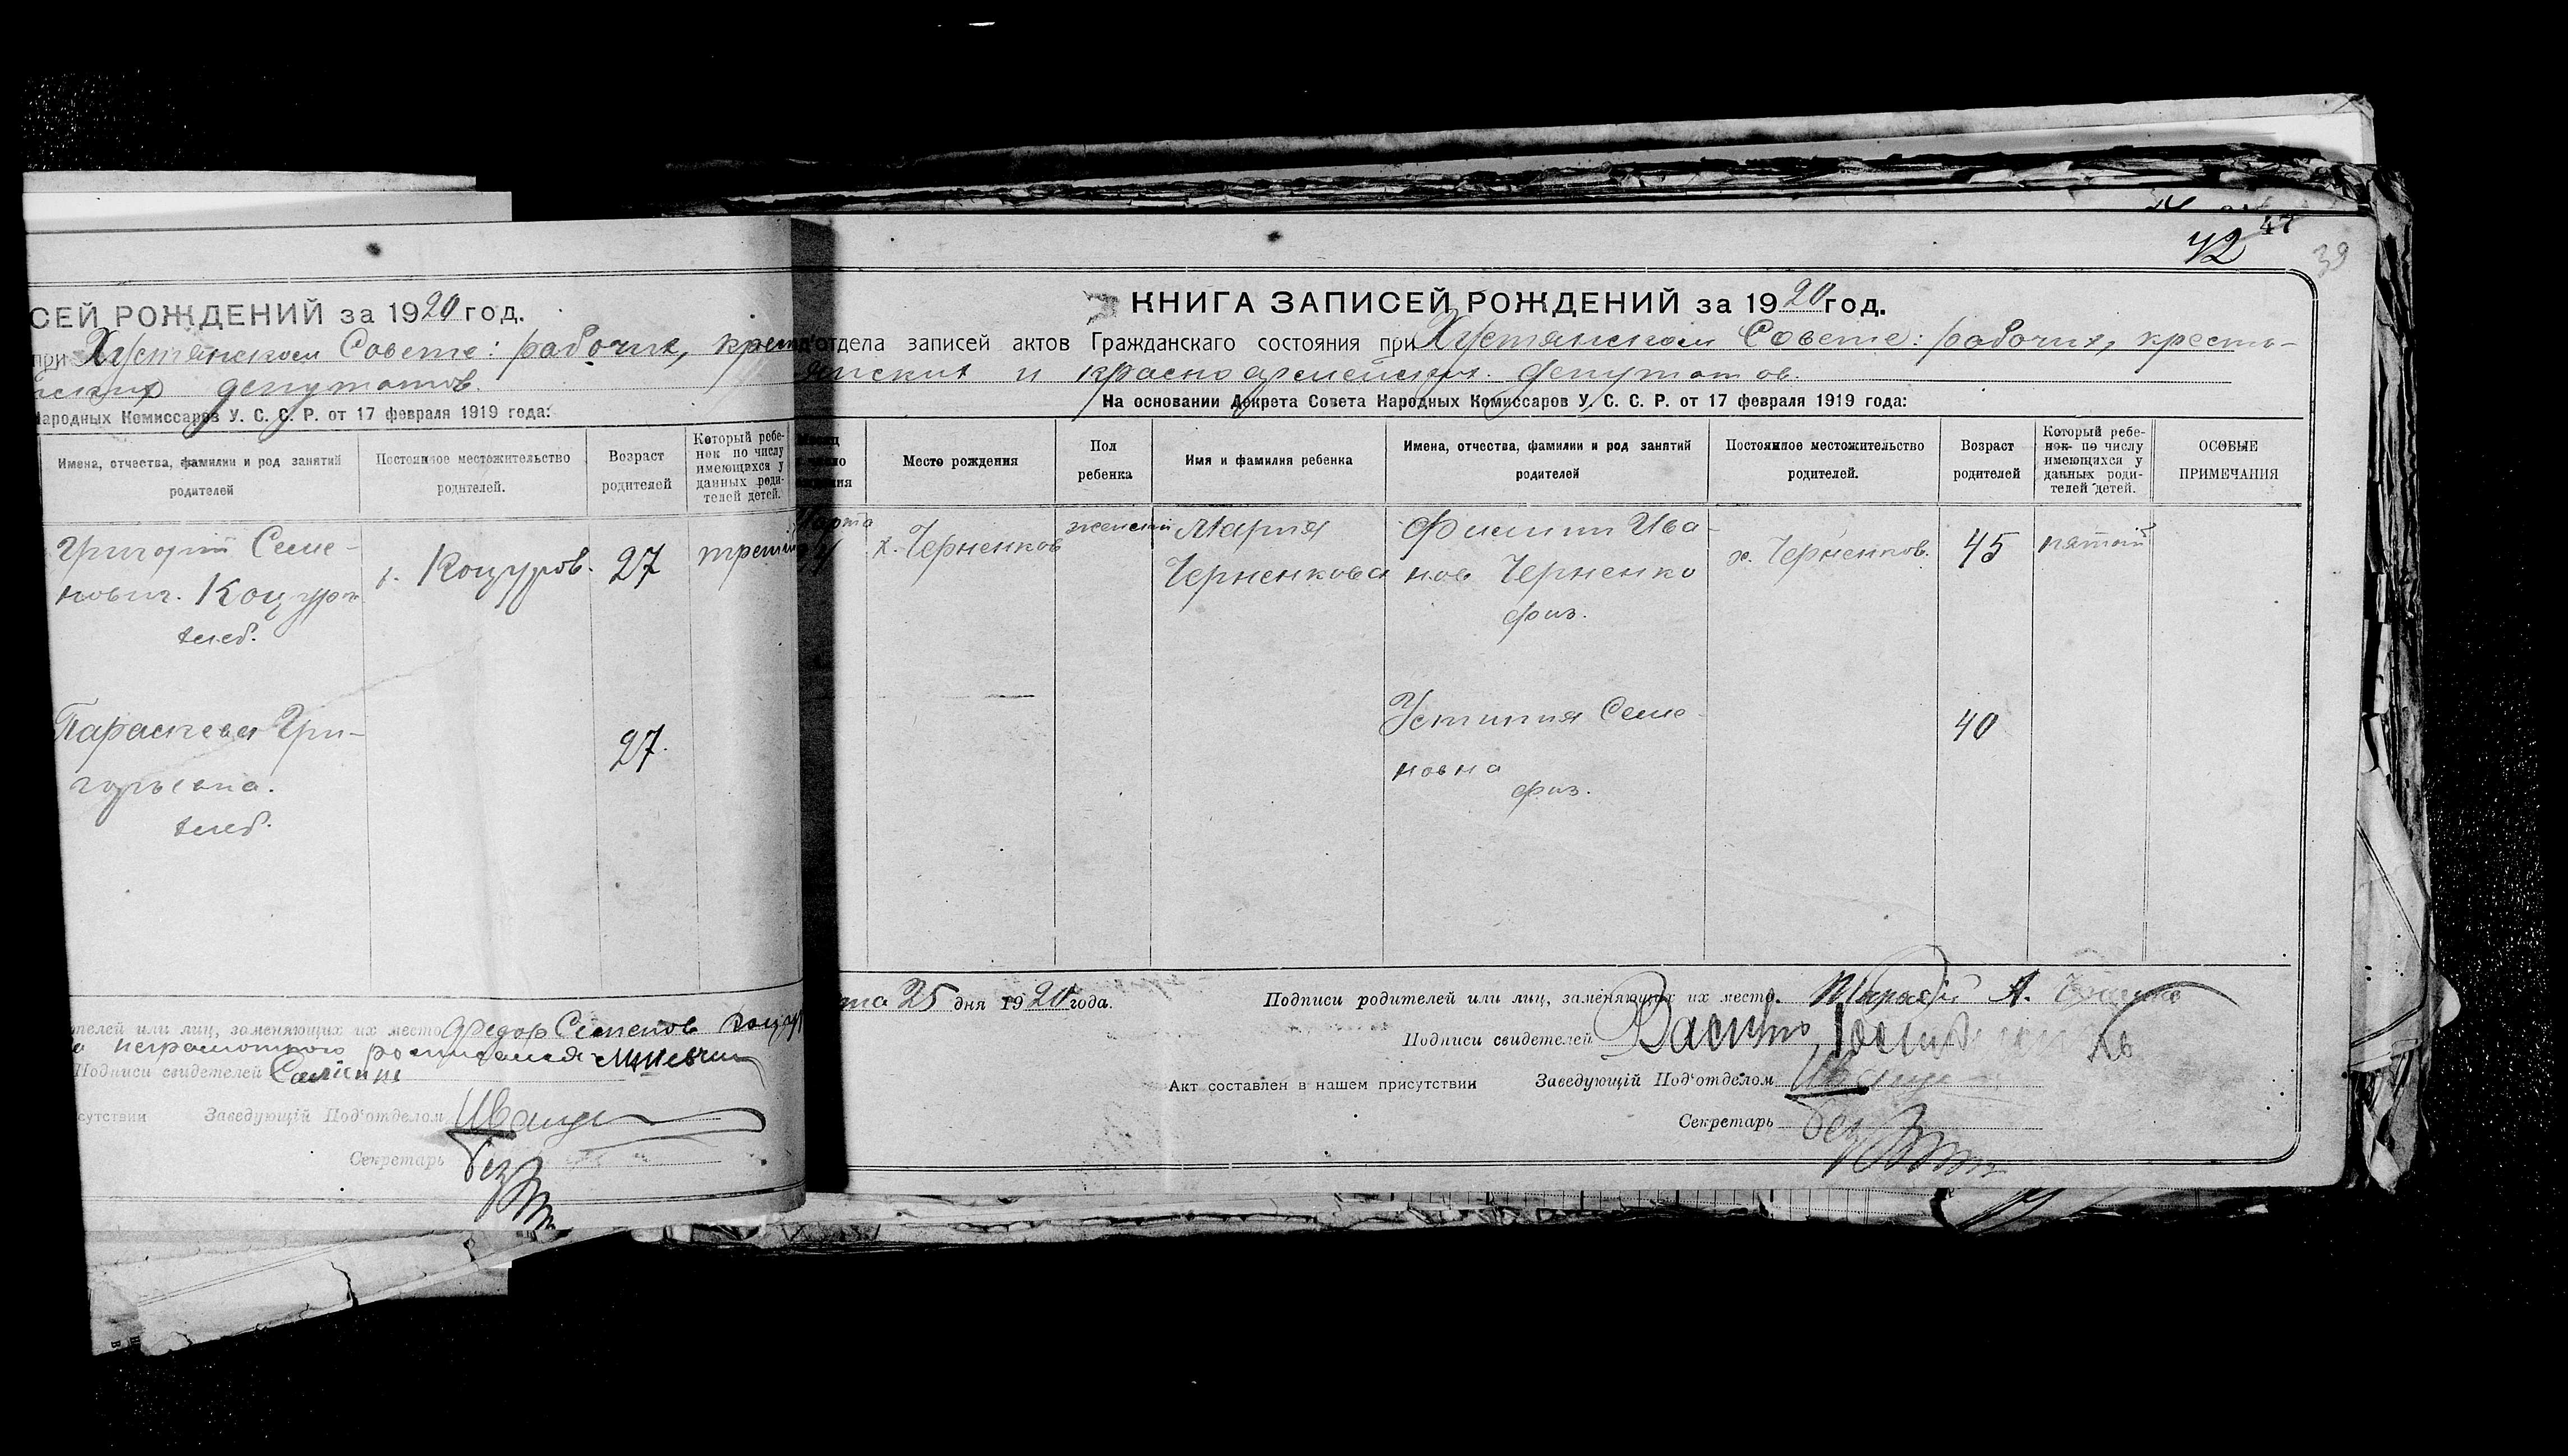 СЕЙ РОЖДЕНИЙ за 1920 год.
при Хустянском Совете: рабочих, крест
нских депутатов.
Народных Комиссаров У. С. С. Р. от 17 февраля 1919 года:
Имена, отчества, фамилии и род занятий родителей
Постоянное местожительство родителей.
Возраст родителей
Который ребе-
нок по числу
имеющихся у
данных роди-
телей детей.
Григорий Семе-
нович. Коцур
хлеб.
Коцуров.
27
третий
Параскева Гри-
горьевна.
хлеб.
27.
телей или лиц, заменяющих их место Федор Семенов Коцур
неграмотного
Подписи свидетелей
сутствии Заведующій Под‘отделом
Секретарь без
42
47
39
КНИГА ЗАПИСЕЙ РОЖДЕНИЙ за 1920 год.
отдела записей актов Гражданскаго состояния при Хустянском Совете: рабочих, кресть-
янских и красноармейских депутатов.
На основании Декрета Совета Народных Комиссаров У. С. С. Р. от 17 февраля 1919 года:
Место рождения
Пол ребенка
Имя и фамилия ребенка
Имена, отчества, фамилии и род занятий родителей
Постоянное местожительство родителей.
Возраст родителей
Который ребе-
нок по числу
имеющихся у
данных роди-
телей детей.
ОСОБЫЕ ПРИМЕЧАНИЯ
Марта
х. Черненков
женский
Мария
Черненкова
Филипп Ива-
нов Черненко
х. Черненков.
45
пятый
Устиния Семе-
новна
40
та 25 дня 1920 года.
Подписи родителей или лиц, заменяющих их место.
Подписи свидетелей
Акт составлен в нашем присутствии Заведующій Под‘отделом
Секретарь без